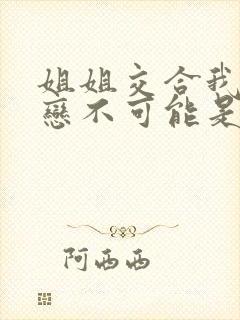 姐姐交合我
戀不可能是
阿西西